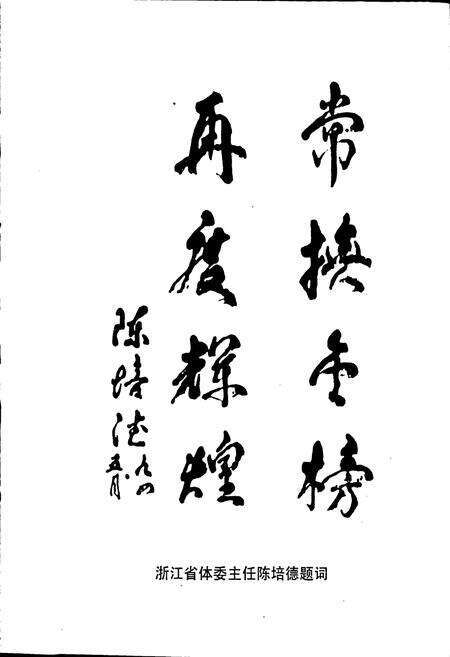 常换金榜
再度辉煌
陈培德 九四
五月
浙江省体委主任陈培德题词